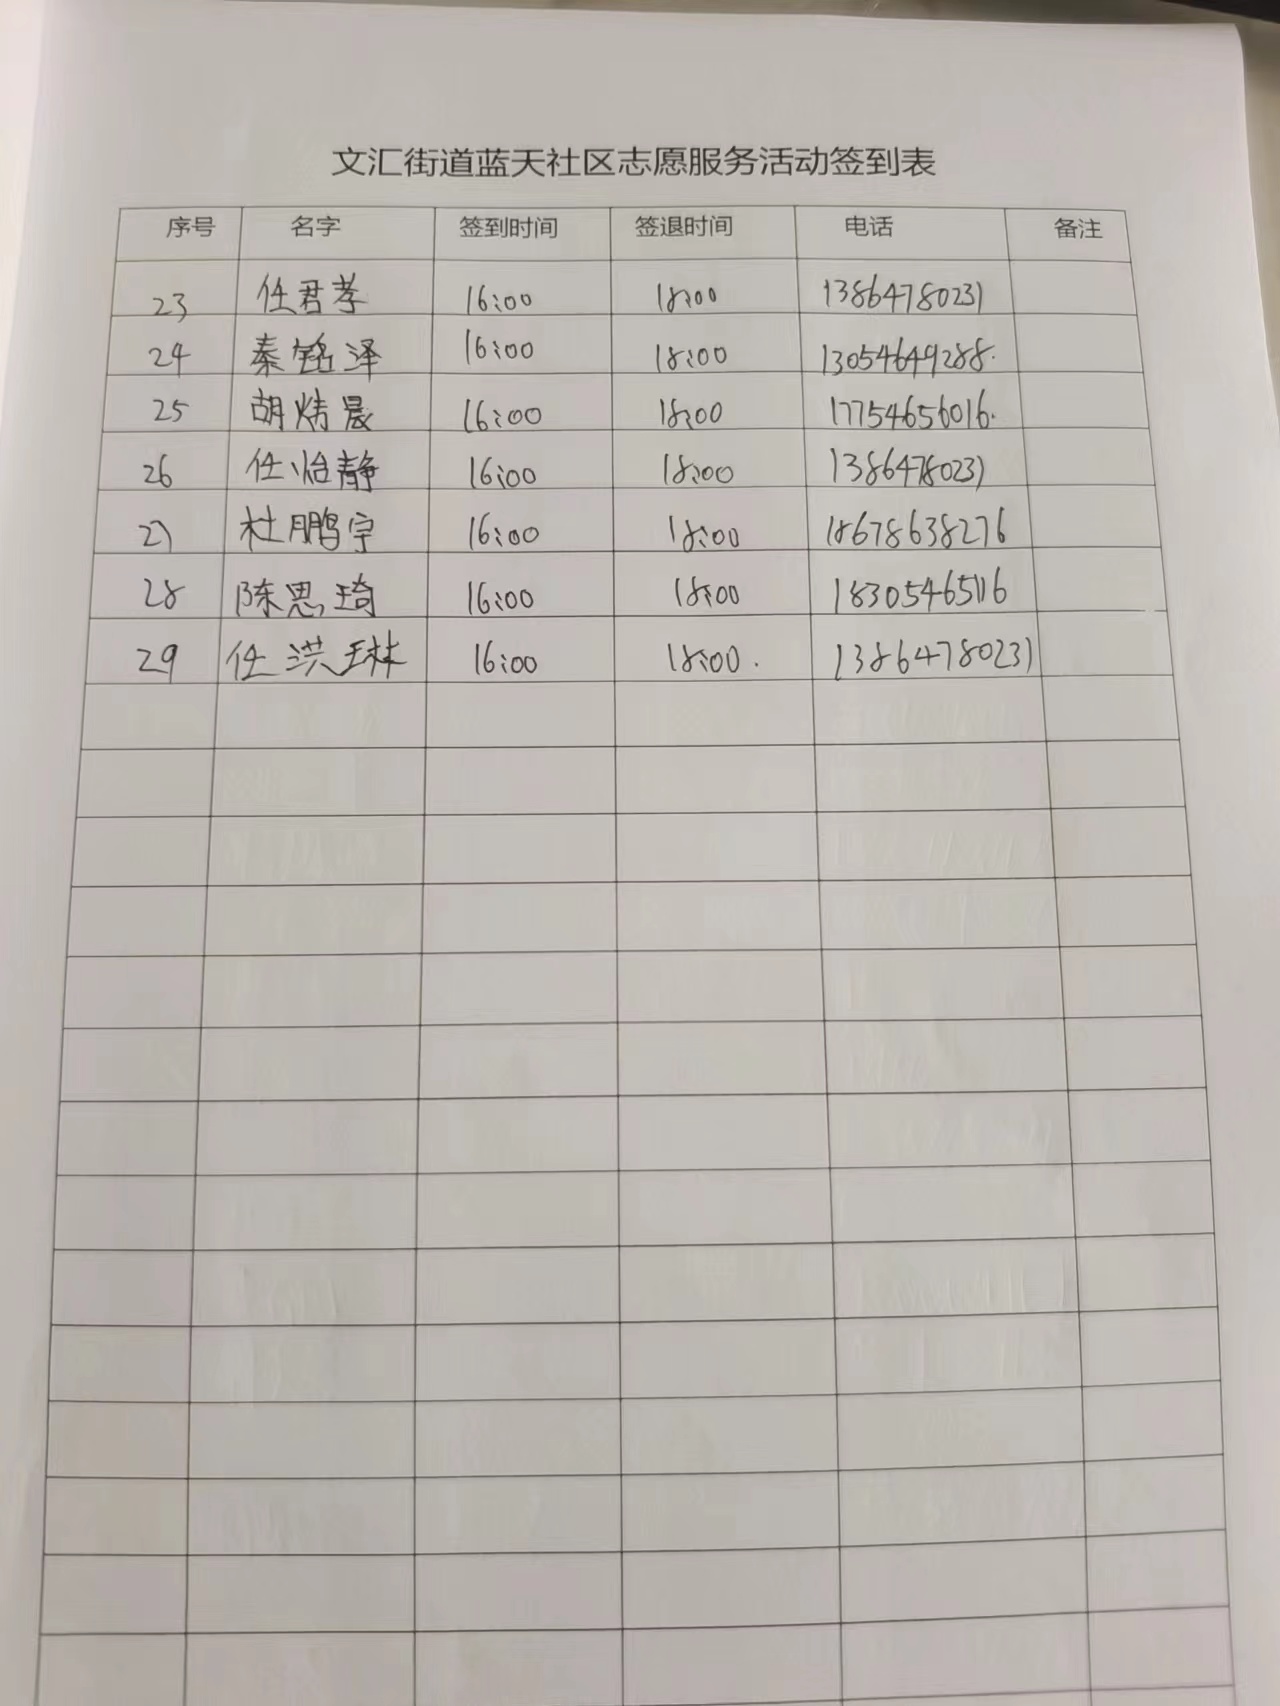 文汇街道蓝天社区志愿服务活动签到表
序号 名字 签到时间 签退时间 电话 备注
23 任君孝 16:00 18:00 13864780231
24 秦铭泽 16:00 18:00 13054649288.
25 胡炜晨 16:00 18:00 17754656016.
26 任怡静 16:00 18:00 13864780231
27 杜鹏宇 16:00 18:00 18678638276
28 陈思琦 16:00 18:00 18305465116
29 任洪琳 16:00 18:00. 13864780231